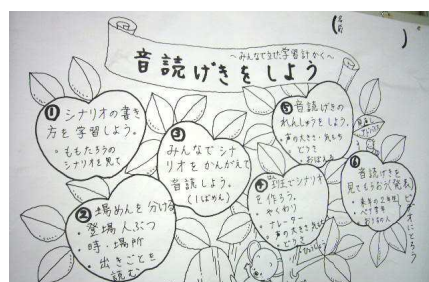 (名前 )
～みんなで立てた学習計かく～
音読げきをしよう
① シナリオの書き
方を学習しよう。
・ももたろうの
シナリオを見て
② 場めんを分ける
・登場人ぶつ
・時・場所
・出きごとを
読む
③ みんなでシナ
リオをかんがえて
音読しよう。
(1ばめん)
④ 班でシナリオ
を作ろう。
・やくわり
・ナレーター
・声の大きさ・気もち
・どうぐ
⑤ 音読げきの
れんしゅうをしよう。
・声の大きさ・気もち
・どうぐ
⑥ 音読げきを
見てもらおう(発表)
ビデオにとろう